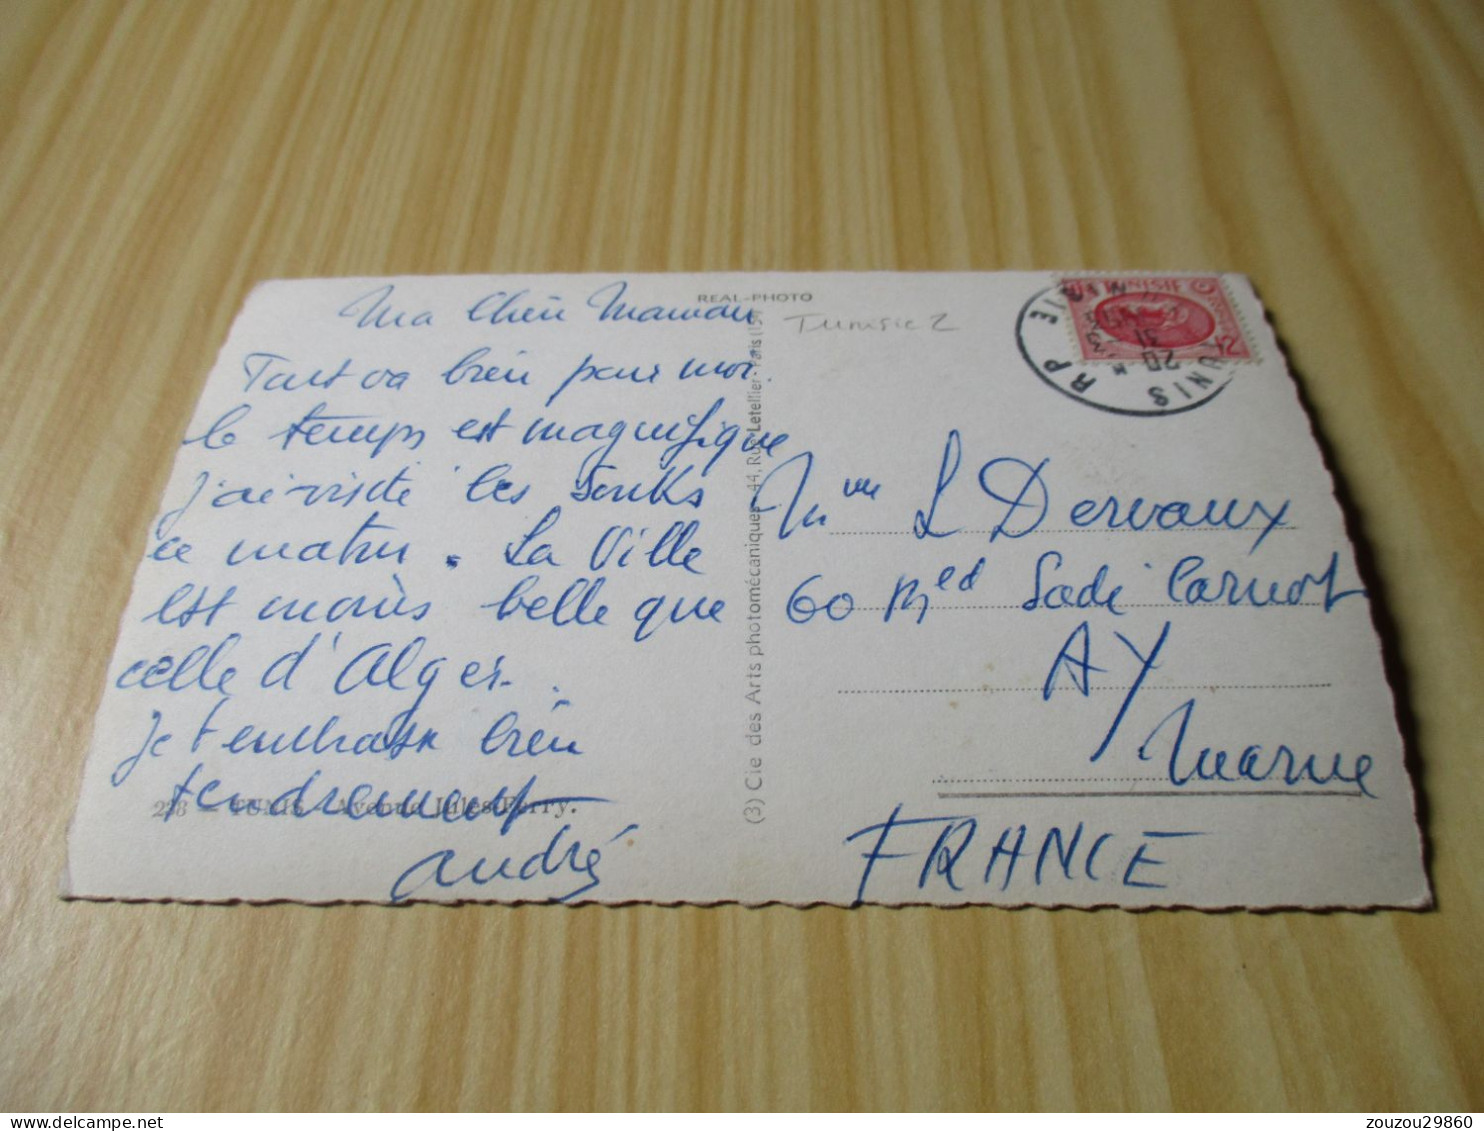 REAL-PHOTO
Tunisie 2
Ma Chère Maman
Tout va bien pour moi.
le temps est magnifique
j'ai visité les Souks
ce matin. La Ville
est moins belle que
celle d'Alger.
Je t'embrasse bien
tendrement
André
238 - TUNIS - Avenue Jules-Ferry.
(3) Cie des Arts photomécaniques - 44, Rue Letellier - Paris (15
TUNISIE
TUNIS RP
Mme L Dervaux
60 Bled Sadi Carnot
AY
Marne
FRANCE
zouzou29860